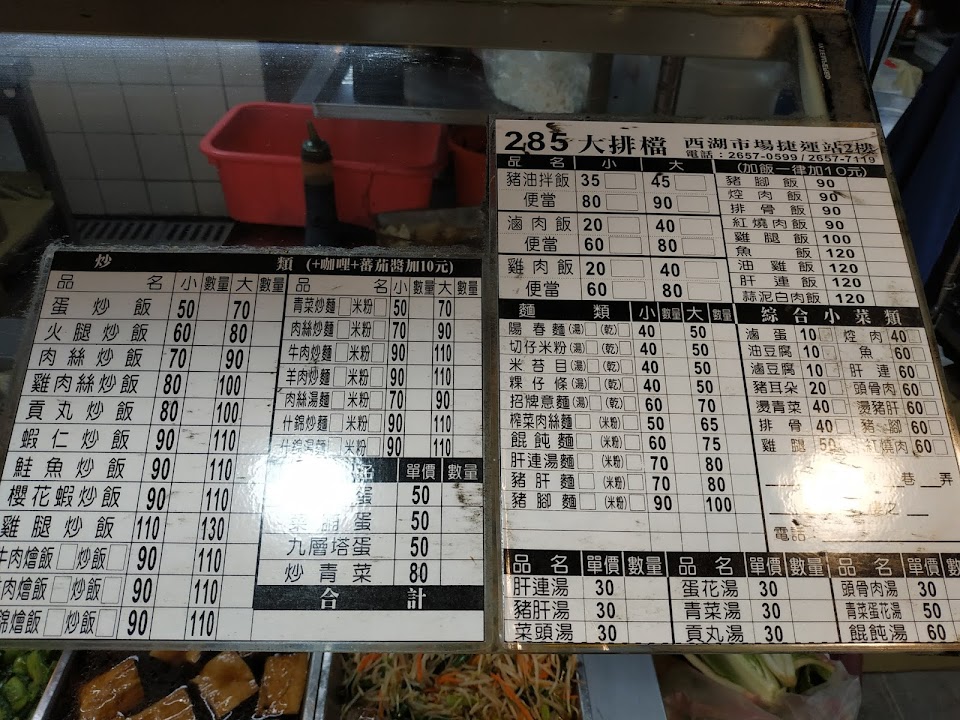 炒 類 (+咖哩+蕃茄醬加10元)
品 名 小 數量 大 數量
蛋炒飯 50 70
火腿炒飯 60 80
肉絲炒飯 70 90
雞肉絲炒飯 80 100
貢丸炒飯 80 100
蝦仁炒飯 90 110
鮭魚炒飯 90 110
櫻花蝦炒飯 90 110
雞腿炒飯 110 130
牛肉燴飯□炒飯□ 90 110
肉燴飯□炒飯□ 90 110
錦燴飯□炒飯□ 90 110
品名 小 數量 大 數量
青菜炒麵□米粉□ 50 70
肉絲炒麵□米粉□ 70 90
牛肉炒麵□米粉□ 90 110
羊肉炒麵□米粉□ 90 110
肉絲湯麵□米粉□ 70 90
什錦炒麵□米粉□ 90 110
什錦湯麵□米粉□ 90 110
名 單價 數量
蛋 50
蛋 50
九層塔蛋 50
炒青菜 80
合 計
285大排檔 西湖市場捷運站2樓
電話:2657-0599/2657-7119
品 名 小 大
豬油拌飯 35 45
便當 80 90
滷肉飯 20 40
便當 60 80
雞肉飯 20 40
便當 60 80
(加飯一律加10元)
豬腳飯 90
焢肉飯 90
排骨飯 90
紅燒肉飯 90
雞腿飯 100
魚飯 120
油雞飯 120
肝連飯 120
蒜泥白肉飯 120
麵 類 小 數量 大 數量
陽春麵(湯)□(乾)□ 40 50
切仔米粉(湯)□(乾)□ 40 50
米苔目(湯)□(乾)□ 40 50
粿仔條(湯)□(乾)□ 40 50
招牌意麵(湯)□(乾)□ 60 70
榨菜肉絲麵□(米粉)□ 50 65
餛飩麵□(米粉)□ 60 75
肝連湯麵□(米粉)□ 70 80
豬肝麵□(米粉)□ 70 80
豬腳麵□(米粉)□ 90 100
綜合小菜類
滷蛋 10 焢肉 40
油豆腐 10 魚 60
滷豆腐 10 肝連 60
豬耳朵 20 頭骨肉 60
燙青菜 40 燙豬肝 60
排骨 40 豬腳 60
雞腿 50 紅燒肉 60
巷 弄
電話:
品名 單價 數量 品名 單價 數量 品名 單價 數量
肝連湯 30 蛋花湯 30 頭骨肉湯 30
豬肝湯 30 青菜湯 30 青菜蛋花湯 50
菜頭湯 30 貢丸湯 30 餛飩湯 60